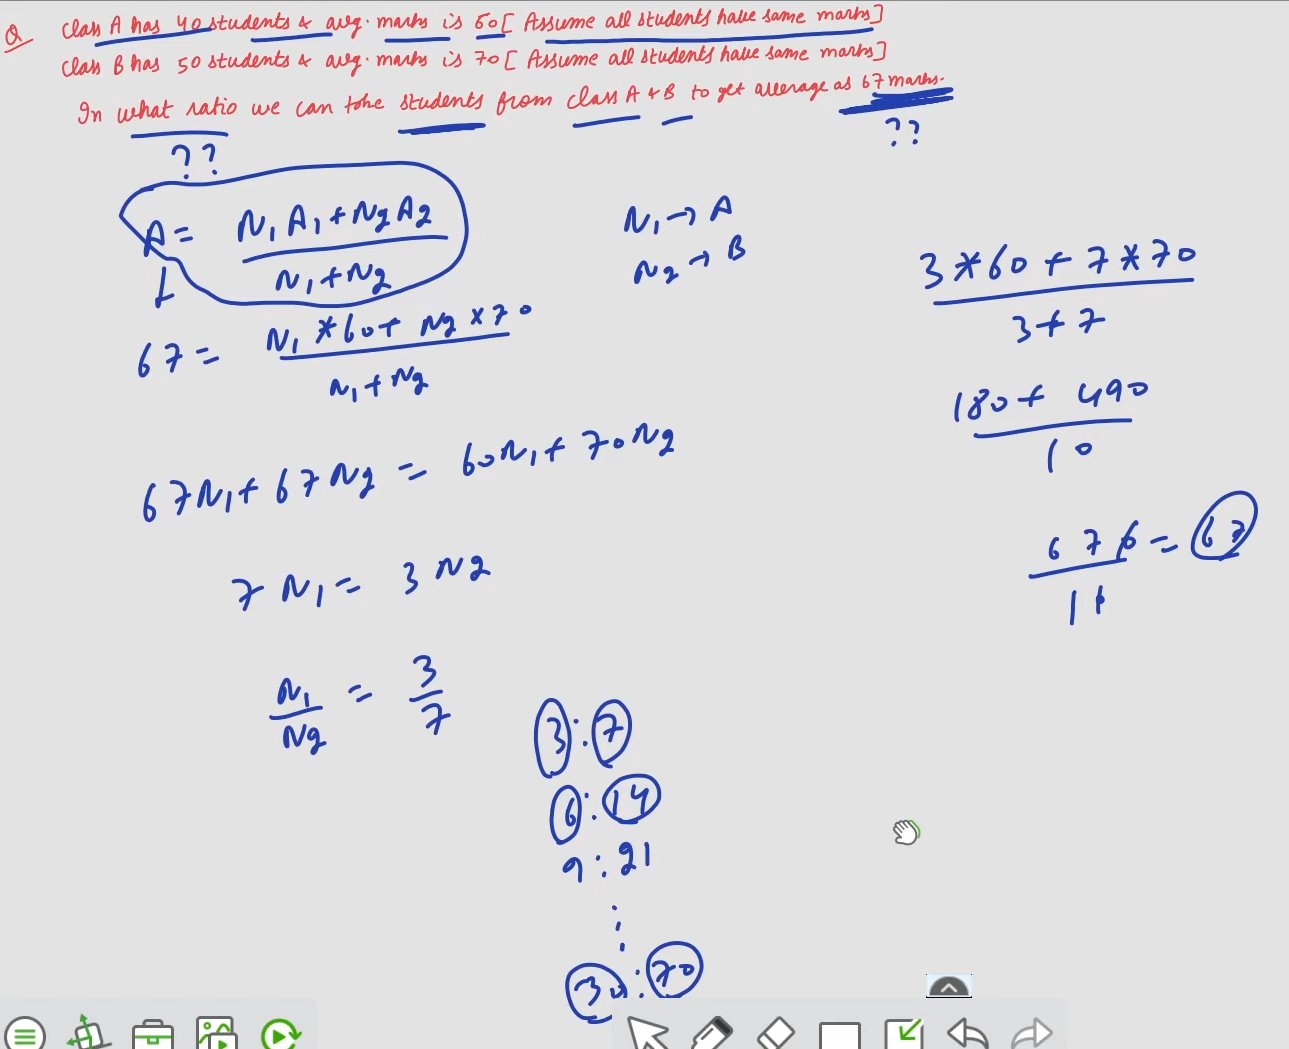 Q Class A has 40 students & avg. marks is 60 [ Assume all students have same marks ]
Class B has 50 students & avg. marks is 70 [ Assume all students have same marks ]
In what ratio we can take students from class A & B to get average as 67 marks.
??
??
A = N1 A1 + N2 A2
N1 + N2
N1 → A
N2 → B
67 = N1 * 60 + N2 × 70
N1 + N2
67N1 + 67N2 = 60N1 + 70N2
7N1 = 3N2
N1 = 3
N2 7
3 : 7
6 : 14
9 : 21
30 : 70
3 * 60 + 7 * 70
3 + 7
180 + 490
10
670 = 67
10